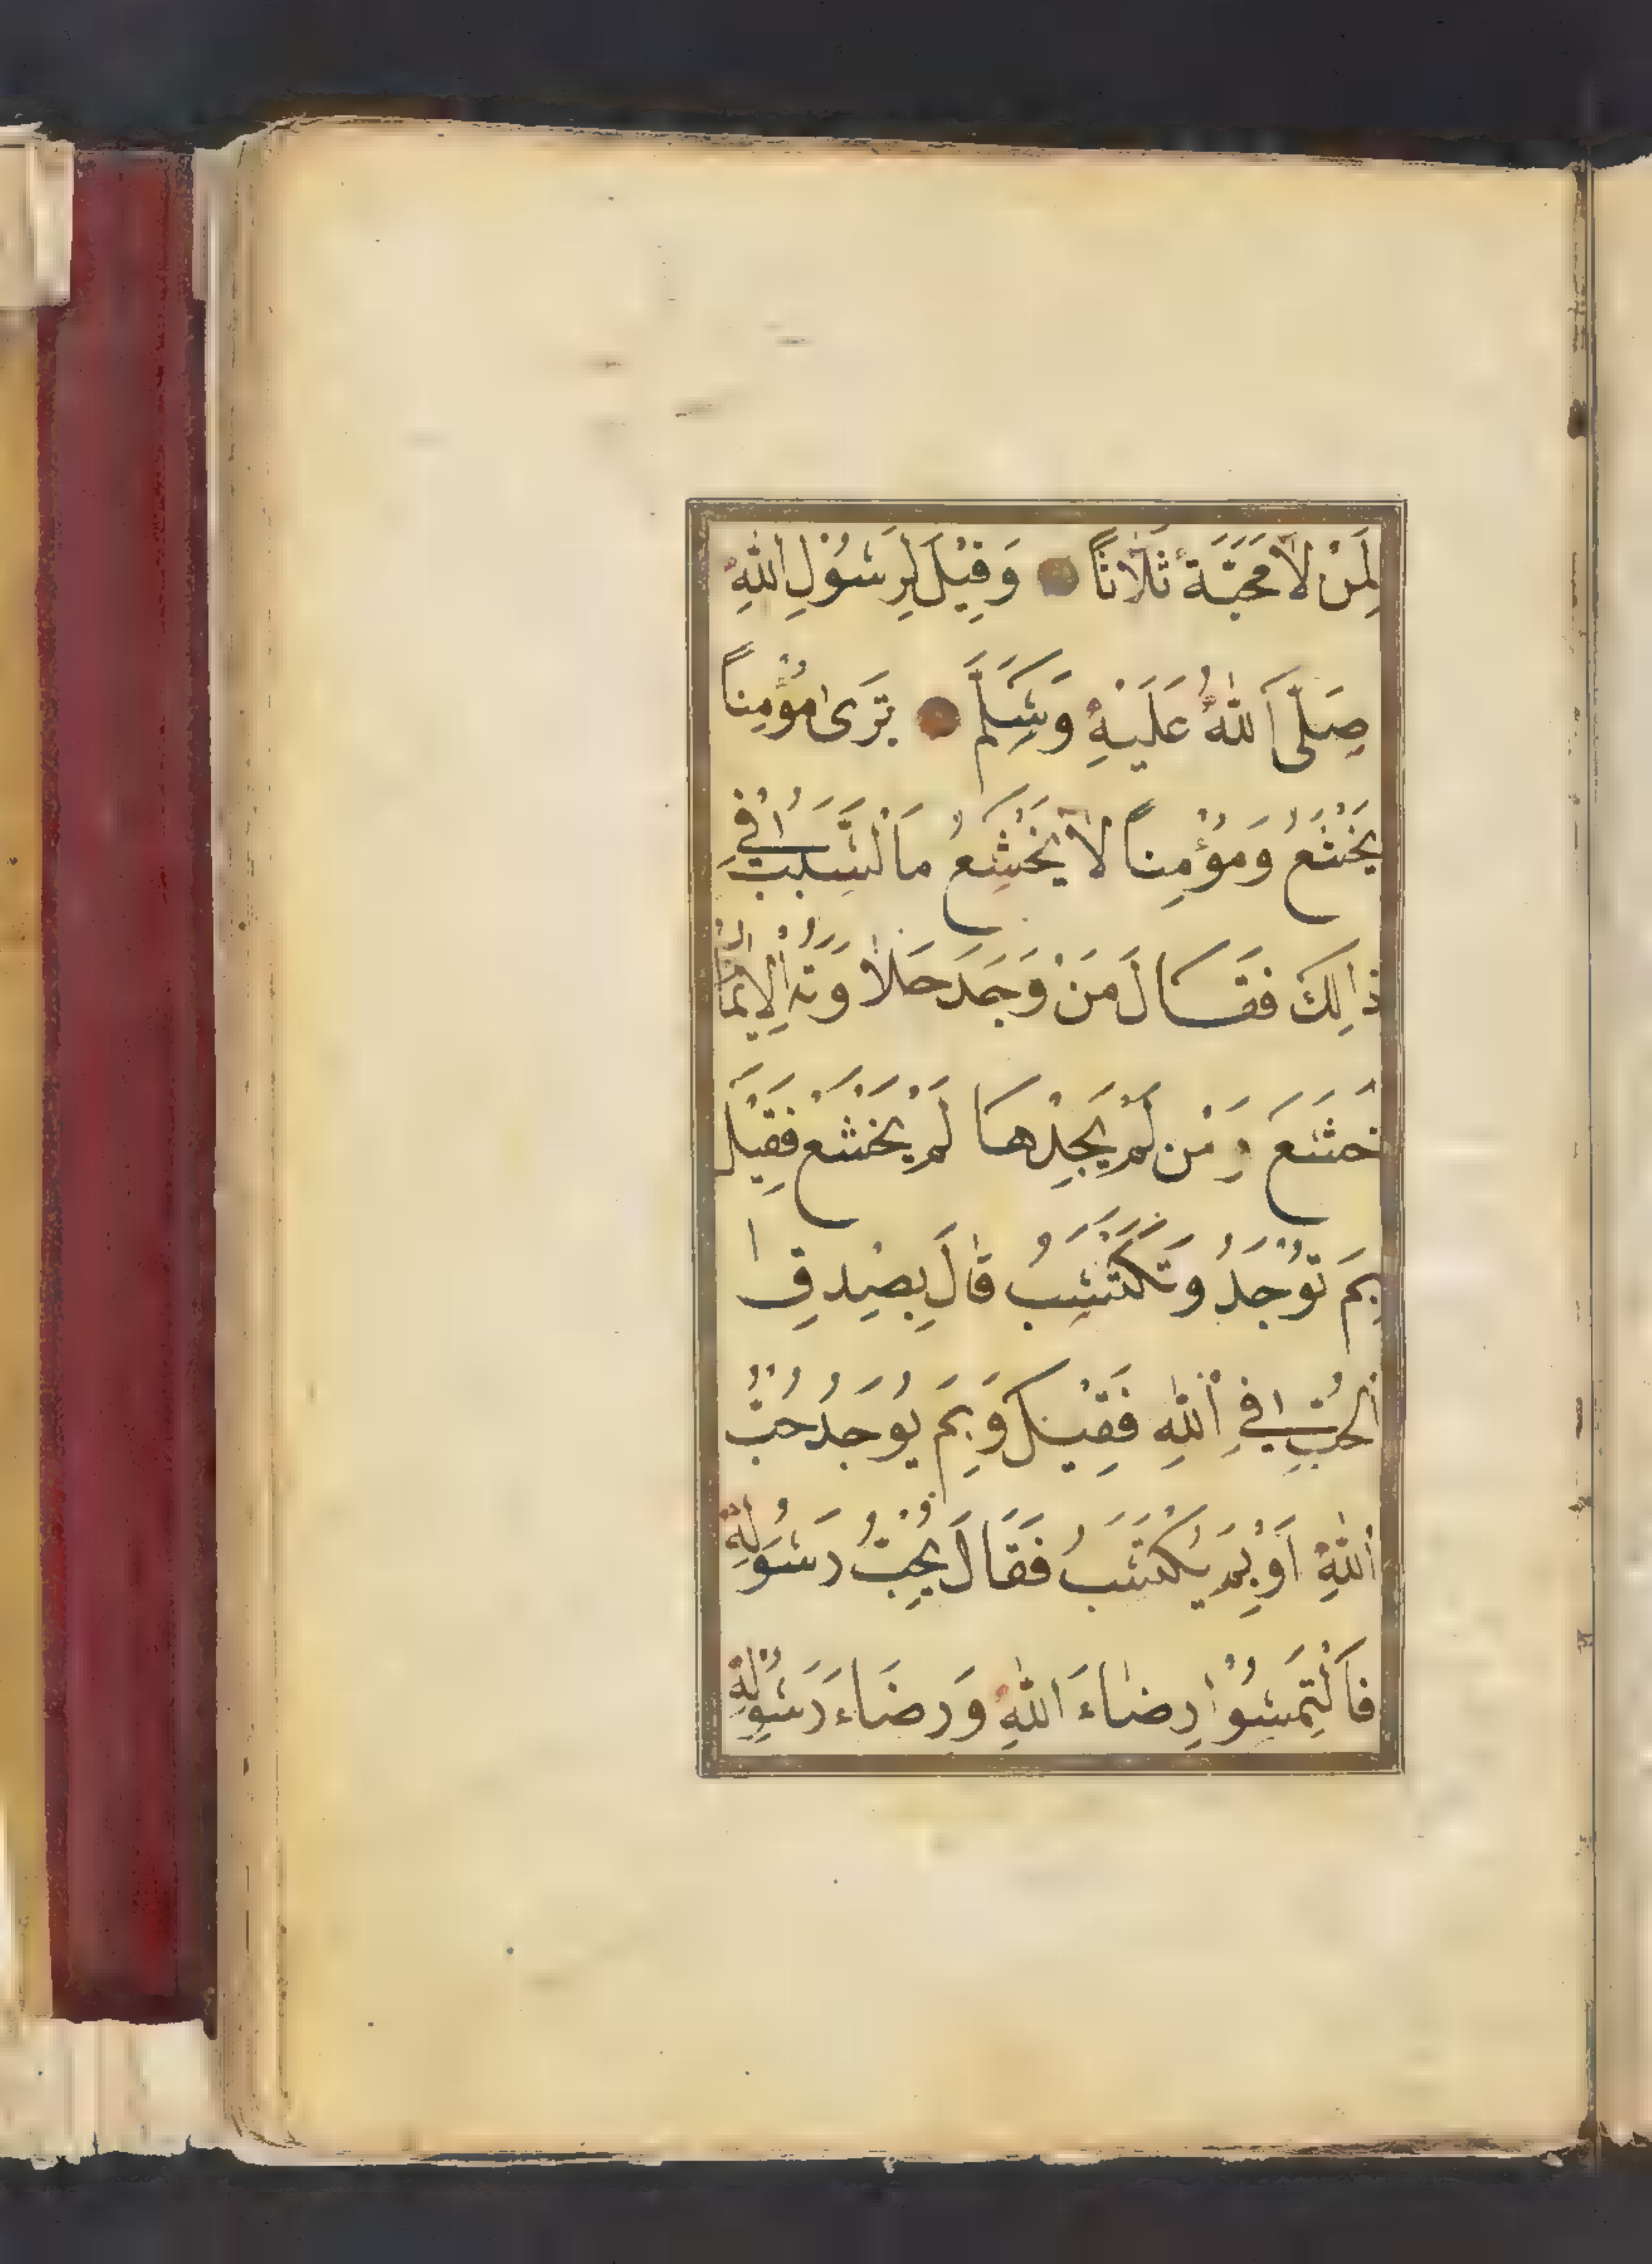 لِمَنْ لَا مَحَبَّةَ ثَلَاثًا وَقِيْلَ لِرَسُوْلِ اللّٰهِ
صَلَّى اللّٰهُ عَلَيْهِ وَسَلَّمَ تَرٰى مُؤْمِنًا
يَخْشَعُ وَمُؤْمِنًا لَا يَخْشَعُ مَا السَّبَبُ فِي
ذٰلِكَ فَقَالَ مَنْ وَجَدَ حَلَاوَةَ الْاِيْمَانِ
خَشَعَ وَمَنْ لَمْ يَجِدْهَا لَمْ يَخْشَعْ فَقِيْلَ
بِمَ تُوْجَدُ وَتُكْتَسَبُ قَالَ بِصِدْقِ
الْحُبِّ فِي اللّٰهِ فَقِيْلَ وَبِمَ يُوْجَدُ حُبُّ
اللّٰهِ اَوْ بِمَ يُكْتَسَبُ فَقَالَ بِحُبِّ رَسُوْلِهِ
فَالْتَمِسُوْا رِضَاءَ اللّٰهِ وَرِضَاءَ رَسُوْلِهِ